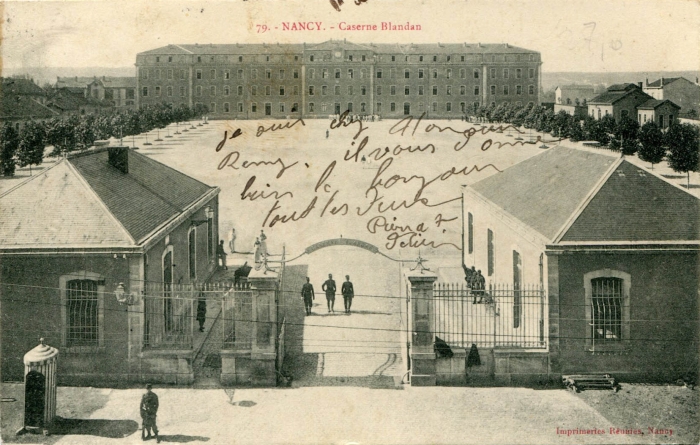 79. - NANCY. - Caserne Blandan
je suis chez Monsieur
Remy. il vous donne
bien le bonjour
tout les deux
Pierre
Imprimeries Réunies, Nancy